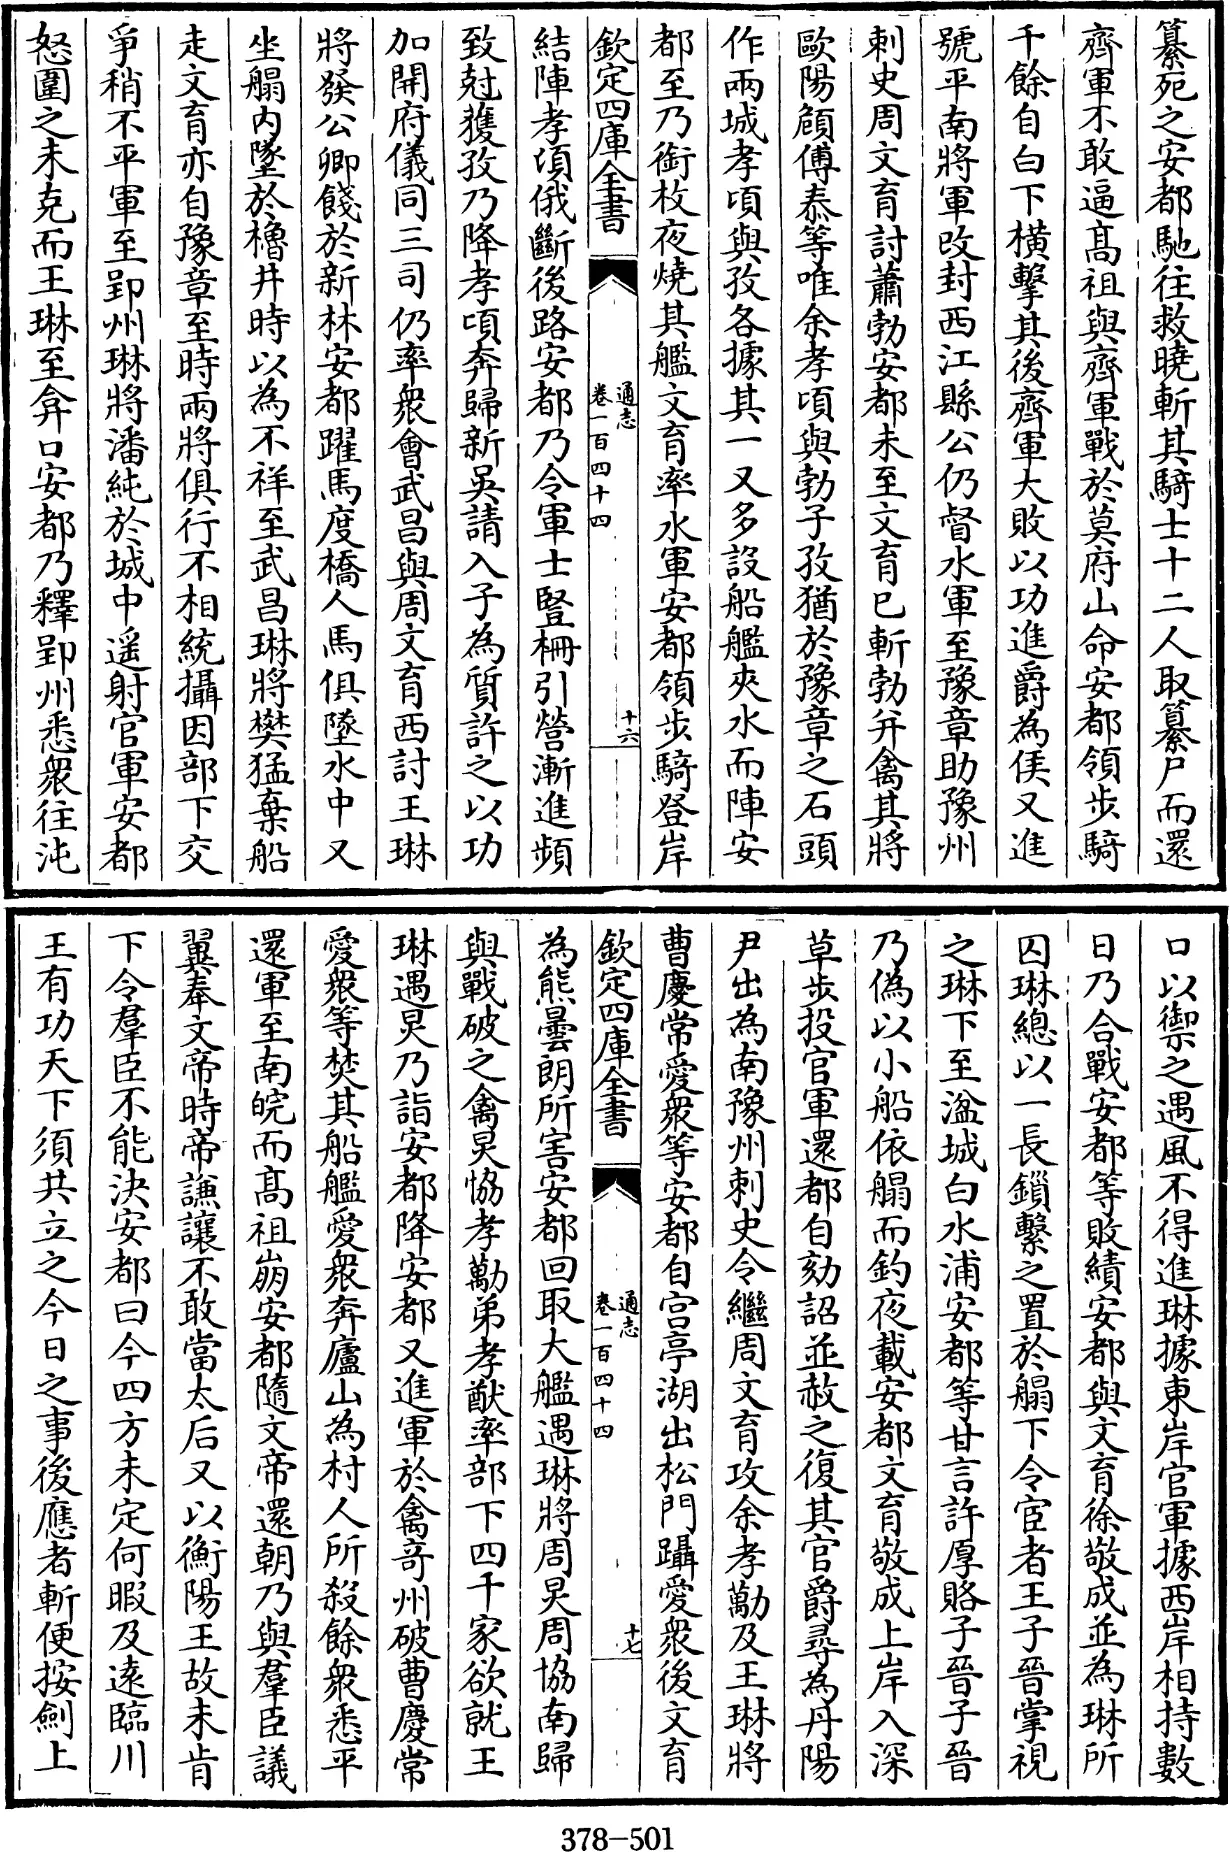 纂死之安都馳往救曉斬其騎士十二人取纂尸而還
齊軍不敢逼髙祖與齊軍戰於莫府山命安都領步騎
千餘自白下橫擊其後齊軍大敗以功進爵為侯又進
號平南將軍改封西江縣公仍督水軍至豫章助豫州
刺史周文育討蕭勃安都未至文育已斬勃并禽其將
歐陽頠傅泰等唯余孝頃與勃子孜猶於豫章之石頭
作兩城孝頃與孜各據其一又多設船艦夾水而陣安
都至乃銜枚夜燒其艦文育率水軍安都領步騎登岸
欽定四庫全書
通志
卷一百四十四
十六
結陣孝頃俄斷後路安都乃令軍士豎柵引營漸進頻
致尅獲孜乃降孝頃奔歸新吳請入子為質許之以功
加開府儀同三司仍率衆會武昌與周文育西討王琳
將發公卿餞於新林安都躍馬度橋人馬俱墜水中又
坐䑽内墜於櫓井時以為不祥至武昌琳將樊猛棄船
走文育亦自豫章至時兩將俱行不相統攝因部下交
爭稍不平軍至郢州琳將潘純於城中遥射官軍安都
怒圍之未克而王琳至弇口安都乃釋郢州悉衆往沌
口以禦之遇風不得進琳據東岸官軍據西岸相持數
日乃合戰安都等敗績安都與文育徐敬成並為琳所
囚琳總以一長鎖繫之置於䑽下令宦者王子晉掌視
之琳下至湓城白水浦安都等甘言許厚賂子晉子晉
乃偽以小船依䑽而釣夜載安都文育敬成上岸入深
草步投官軍還都自劾詔並赦之復其官爵尋為丹陽
尹出為南豫州刺史令繼周文育攻余孝勱及王琳將
曹慶常愛衆等安都自宫亭湖出松門躡愛衆後文育
欽定四庫全書
通志
卷一百四十四
十七
為熊曇朗所害安都回取大艦遇琳將周炅周協南歸
與戰破之禽炅協孝勱弟孝猷率部下四千家欲就王
琳遇炅乃詣安都降安都又進軍於禽竒州破曹慶常
愛衆等焚其船艦愛衆奔廬山為村人所殺餘衆悉平
還軍至南皖而髙祖崩安都隨文帝還朝乃與羣臣議
翼奉文帝時帝謙讓不敢當太后又以衡陽王故未肯
下令羣臣不能決安都曰今四方未定何暇及遠臨川
王有功天下須共立之今日之事後應者斬便按劍上
378-501